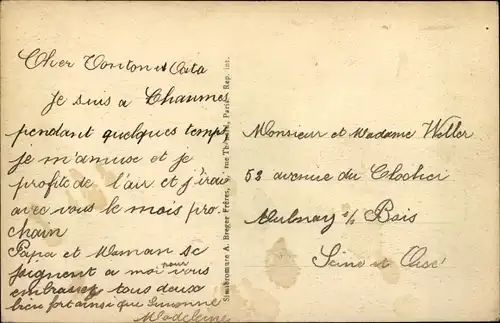 Cher Tonton et Tata
Je suis a Chaumes
pendant quelques temps
je m'amuse et je
profite de l'air et j'irai
avec vous le mois pro-
chain
Papa et Maman se
joignent a moi pour vous
embrasser tous deux
bien fort ainsi que Simonne
Madeleine
Simibromure A. Breger Frères, rue Thénard, Paris - Rep. int.
Monsieur et Madame Willer
53 avenue du Clocher
Aulnay s/s Bois
Seine et Oise